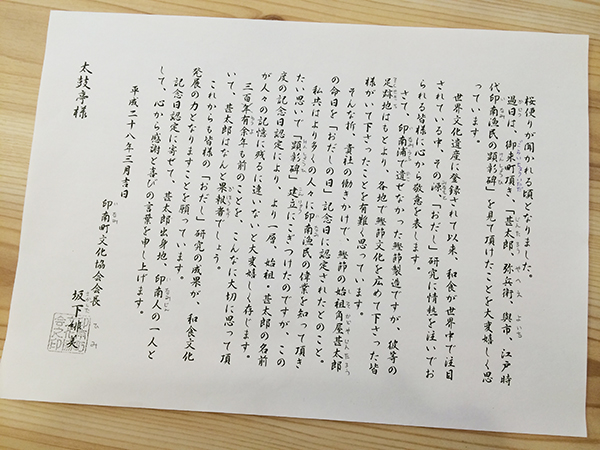 桜便りが聞かれる頃となりました。
過日は、御来町頂き、「甚太郎、弥兵衛、與市、江戸時
代印南漁民の顕彰碑」を見て頂けたことを大変嬉しく思
っています。
世界文化遺産に登録されて以来、和食が世界中で注目
されている中、その源「おだし」研究に情熱を注いでお
られる皆様に心から敬意を表します。
さて、印南浦で遺せなかった鰹節製造ですが、彼等の
足跡地はもとより、各地で鰹節文化を広めて下さった皆
様がいて下さったことを有難く思っています。
そんな折、貴社の働きかけで、鰹節の始祖角屋甚太郎
の命日を「おだしの日」記念日に認定されたとのこと。
私共はより多くの人々に印南漁民の偉業を知って頂き
たい思いで「顕彰碑」建立にこぎつけたのですが、この
度の記念日認定により、より一層、始祖・甚太郎の名前
が人々の記憶に残るに違いないと大変嬉しく存じます。
三百年有余年も前のことを、こんなに大切に思って頂
いて、甚太郎はなんと果報者でしょう。
これからも皆様の「おだし」研究の成果が、和食文化
発展の力となりますことを願っています。
記念日認定に寄せて、甚太郎出身地、印南人の一人と
して、心から感謝と喜びの言葉を申し上げます。
平成二十八年三月吉日
印南町文化協会会長
坂下緋美
太鼓亭様